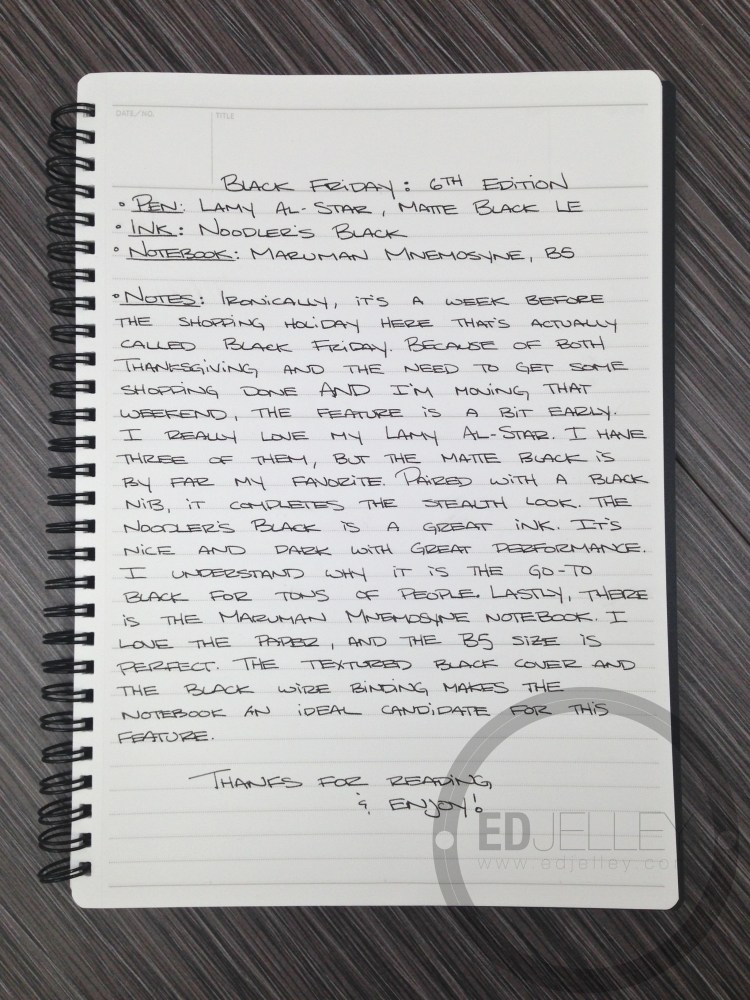 DATE/NO. TITLE
BLACK FRIDAY: 6TH EDITION
• PEN: LAMY AL-STAR, MATTE BLACK LE
• INK: NOODLER'S BLACK
• NOTEBOOK: MARUMAN MNEMOSYNE, B5
• NOTES: IRONICALLY, IT'S A WEEK BEFORE
THE SHOPPING HOLIDAY HERE THAT'S ACTUALLY
CALLED BLACK FRIDAY. BECAUSE OF BOTH
THANKSGIVING AND THE NEED TO GET SOME
SHOPPING DONE AND I'M MOVING THAT
WEEKEND, THE FEATURE IS A BIT EARLY.
I REALLY LOVE MY LAMY AL-STAR. I HAVE
THREE OF THEM, BUT THE MATTE BLACK IS
BY FAR MY FAVORITE. PAIRED WITH A BLACK
NIB, IT COMPLETES THE STEALTH LOOK. THE
NOODLER'S BLACK IS A GREAT INK. IT'S
NICE AND DARK WITH GREAT PERFORMANCE.
I UNDERSTAND WHY IT IS THE GO-TO
BLACK FOR TONS OF PEOPLE. LASTLY, THERE
IS THE MARUMAN MNEMOSYNE NOTEBOOK. I
LOVE THE PAPER, AND THE B5 SIZE IS
PERFECT. THE TEXTURED BLACK COVER AND
THE BLACK WIRE BINDING MAKES THE
NOTEBOOK AN IDEAL CANDIDATE FOR THIS
FEATURE.
THANKS FOR READING,
& ENJOY!
EDJELLEY
www.edjelley.com